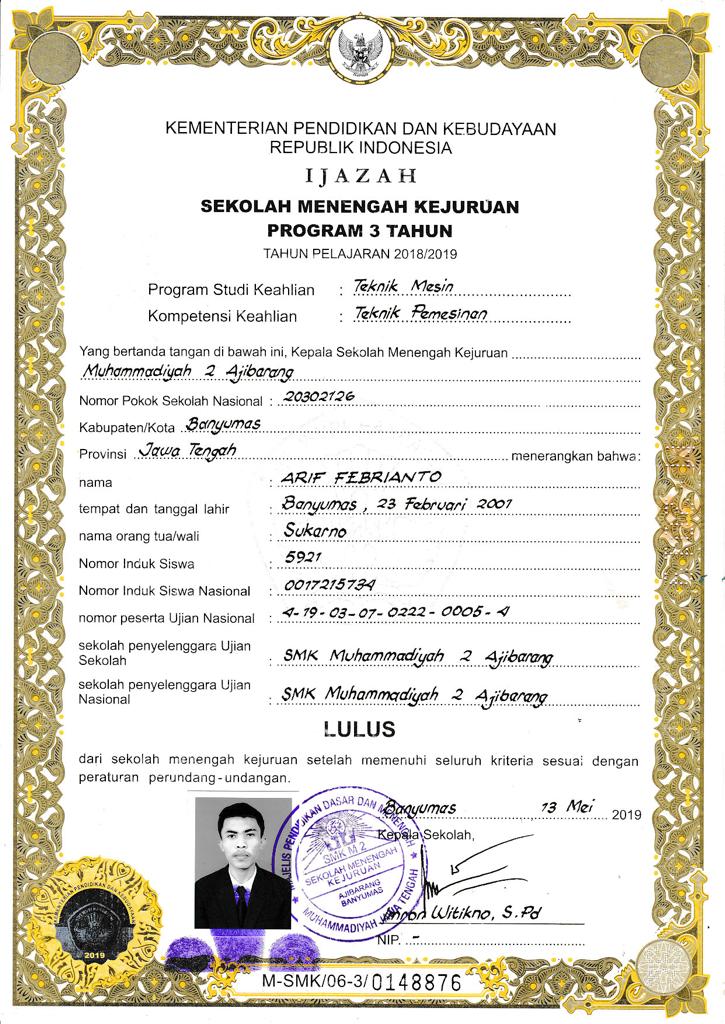 KEMENTERIAN PENDIDIKAN DAN KEBUDAYAAN
REPUBLIK INDONESIA
IJAZAH
SEKOLAH MENENGAH KEJURUAN
PROGRAM 3 TAHUN
TAHUN PELAJARAN 2018/2019
Program Studi Keahlian : Teknik Mesin
Kompetensi Keahlian : Teknik Pemesinan
Yang bertanda tangan di bawah ini, Kepala Sekolah Menengah Kejuruan
Muhammadiyah 2 Ajibarang
Nomor Pokok Sekolah Nasional : 20302126
Kabupaten/Kota Banyumas
Provinsi Jawa Tengah menerangkan bahwa:
nama : ARIF FEBRIANTO
tempat dan tanggal lahir : Banyumas, 23 Februari 2001
nama orang tua/wali : Sukarno
Nomor Induk Siswa : 5921
Nomor Induk Siswa Nasional : 0017215734
nomor peserta Ujian Nasional : 4-19-03-07-0222-0005-4
sekolah penyelenggara Ujian
Sekolah : SMK Muhammadiyah 2 Ajibarang
sekolah penyelenggara Ujian
Nasional : SMK Muhammadiyah 2 Ajibarang
LULUS
dari sekolah menengah kejuruan setelah memenuhi seluruh kriteria sesuai dengan
peraturan perundang-undangan.
Banyumas 13 Mei 2019
Kepala Sekolah,
MAJELIS PENDIDIKAN DASAR DAN MENENGAH
SMK M 2
SEKOLAH MENENGAH
KEJURUAN
AJIBARANG
BANYUMAS
MUHAMMADIYAH JAWA TENGAH
Witikno, S.Pd
NIP. -
2019
M-SMK/06-3/0148876